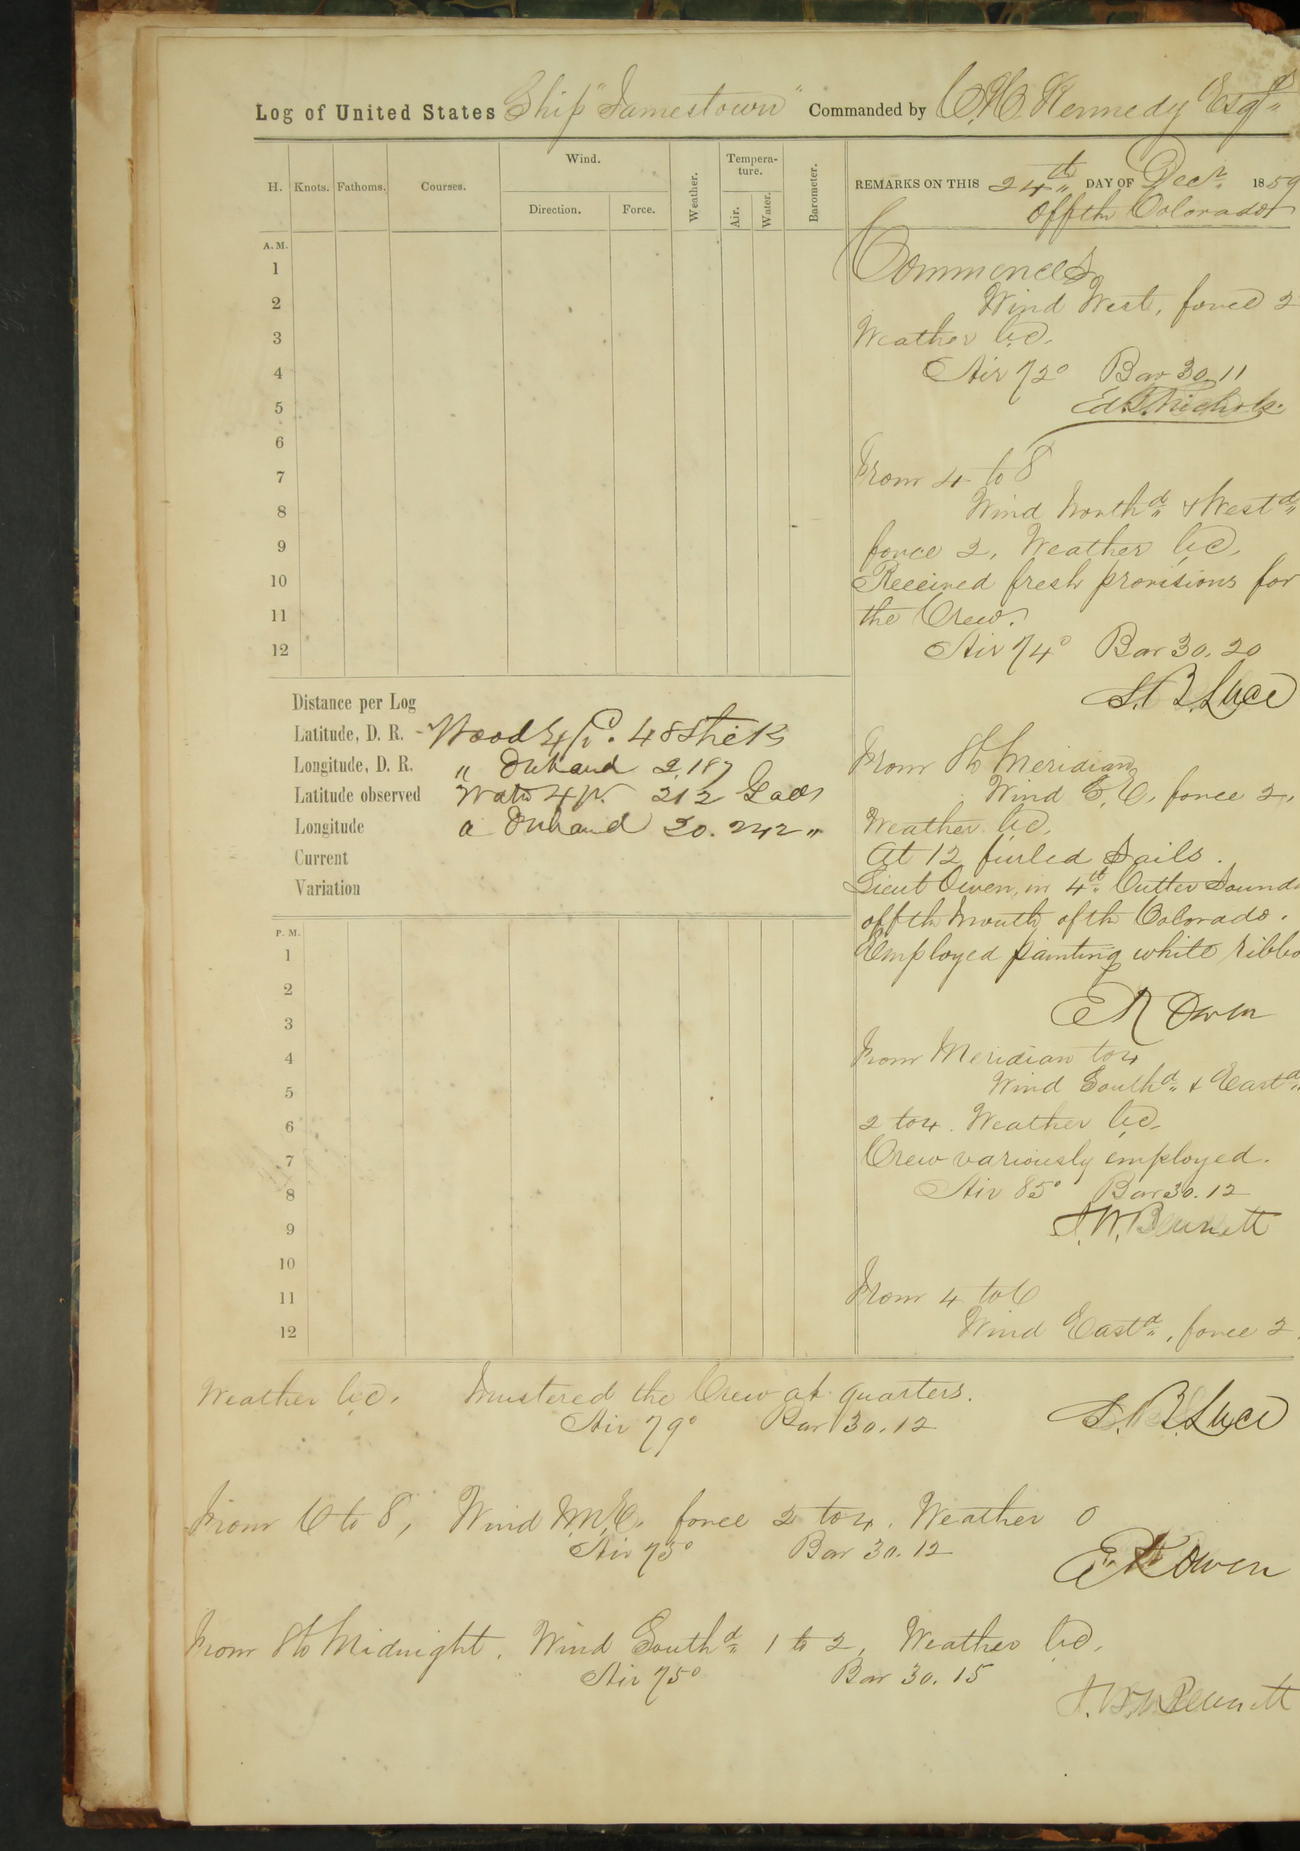 Log of United States Ship "Jamestown" Commanded by C. H. Kennedy Esqr
H. Knots. Fathoms. Courses. Wind. Direction. Force. Weather. Tempera-ture. Air. Water. Barometer.
REMARKS ON THIS 24th DAY OF Decr. 1859
off the Colorado
Commences
Wind West, force 2
Weather b.c.
Air 72° Bar 30.11
Ed. T. Nichols.
From 4 to 8
Wind Northd & Westd
force 2, Weather b.c.
Received fresh provisions for
the Crew.
Air 74° Bar 30.20
S. B. Luce
From 8 to Meridian
Wind E, force 2,
Weather b.c.
At 12 furled Sails.
Lieut Owen, in 4th Cutter Sound
off the mouth of the Colorado.
Employed painting white ribbo
E K Owen
From Meridian to 4
Wind Southd & Eastd
2 to 4. Weather b.c.
Crew variously employed.
Air 85° Bar 30.12
J. W. Bennett
From 4 to 6
Wind Eastd, force 2.
A. M.
1
2
3
4
5
6
7
8
9
10
11
12
Distance per Log
Latitude, D. R. Wood 48 Sticks
Longitude, D. R. " On hand 2,187
Latitude observed Water 212 Galls
Longitude On hand 30.242 "
Current
Variation
P. M.
1
2
3
4
5
6
7
8
9
10
11
12
Weather b.c. Mustered the Crew at quarters.
Air 79° Bar 30.12 S. B. Luce
From 6 to 8, Wind N.N.E. force 2 to 4. Weather O
Air 75° Bar 30.12
E K Owen
From 8 to Midnight. Wind Southd 1 to 2, Weather b.c.
Air 75° Bar 30.15
J. W. Bennett